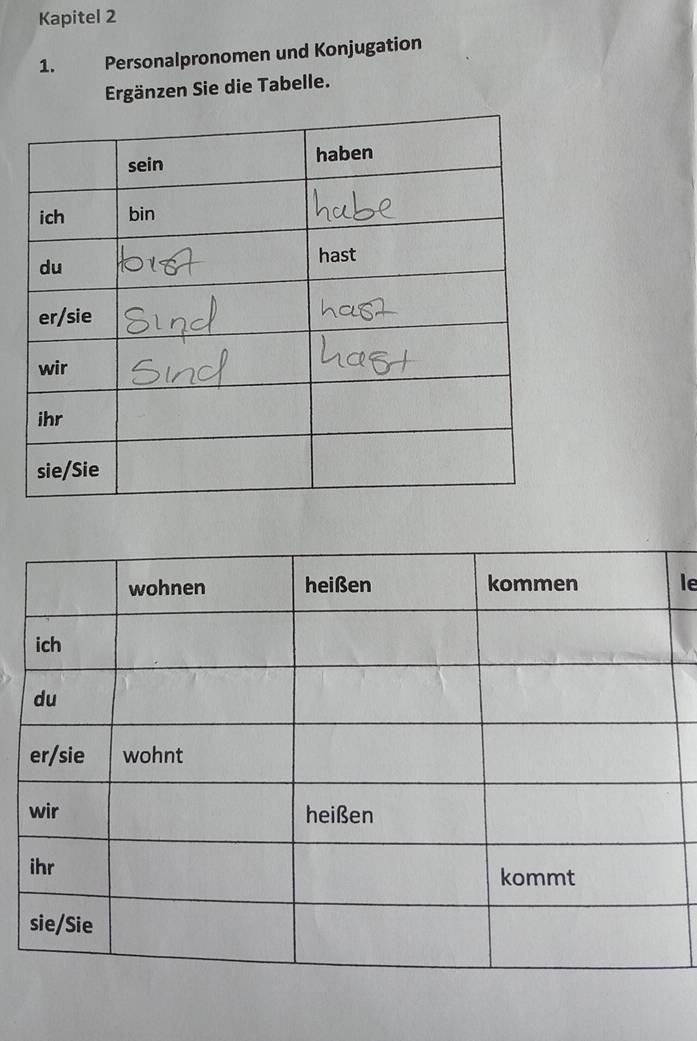 Kapitel 2
1. Personalpronomen und Konjugation
Ergänzen Sie die Tabelle.
sein haben
ich bin habe
du bist hast
er/sie sind hast
wir sind hast
ihr
sie/Sie
wohnen heißen kommen le
ich
du
er/sie wohnt
wir heißen
ihr kommt
sie/Sie